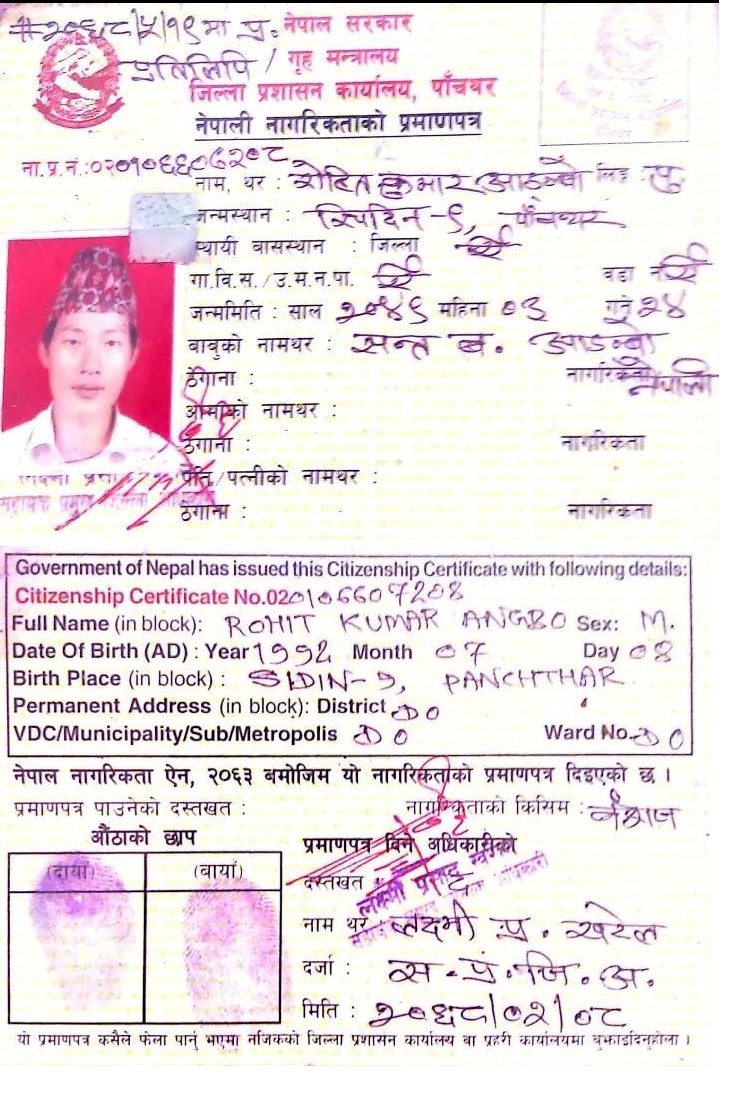 #२०६८/५/१९ मा प्र. नेपाल सरकार
प्रतिलिपि / गृह मन्त्रालय
जिल्ला प्रशासन कार्यालय, पाँचथर
नेपाली नागरिकताको प्रमाणपत्र
ना.प्र.नं.:०२०१०६६०७२०८
नाम, थर : रोहित कुमार आङबो लिङ्ग पु.
जन्मस्थान : सिदिन-९, पाँचथर
स्थायी बासस्थान : जिल्ला
गा.वि.स./उ.म.न.पा. वडा नं
जन्ममिति : साल २०४९ महिना ०३ गते २४
बाबुको नामथर : सन्त ब. आङबो
ठेगाना : नागरिकता नेपाली
आमाको नामथर :
ठेगाना : नागरिकता
पति/पत्नीको नामथर :
ठेगाना : नागरिकता
Government of Nepal has issued this Citizenship Certificate with following details:
Citizenship Certificate No.020106607208
Full Name (in block): ROHIT KUMAR ANGBO Sex: M.
Date Of Birth (AD) : Year 1992 Month 07 Day 08
Birth Place (in block) : SIDIN-9, PANCHTHAR
Permanent Address (in block): District DO
VDC/Municipality/Sub/Metropolis DO Ward No. DO
नेपाल नागरिकता ऐन, २०६३ बमोजिम यो नागरिकताको प्रमाणपत्र दिइएको छ ।
प्रमाणपत्र पाउनेको दस्तखत : नागरिकताको किसिम : वंशज
औंठाको छाप
प्रमाणपत्र दिने अधिकारीको
(दायाँ) (बायाँ)
दस्तखत :
नाम थर : लक्ष्मी प्र. खरेल
दर्जा : स.प्र.जि.अ.
मिति : २०६८/०२/०८
यो प्रमाणपत्र कसैले फेला पार्नु भएमा नजिकको जिल्ला प्रशासन कार्यालय वा प्रहरी कार्यालयमा बुझाईदिनुहोला ।